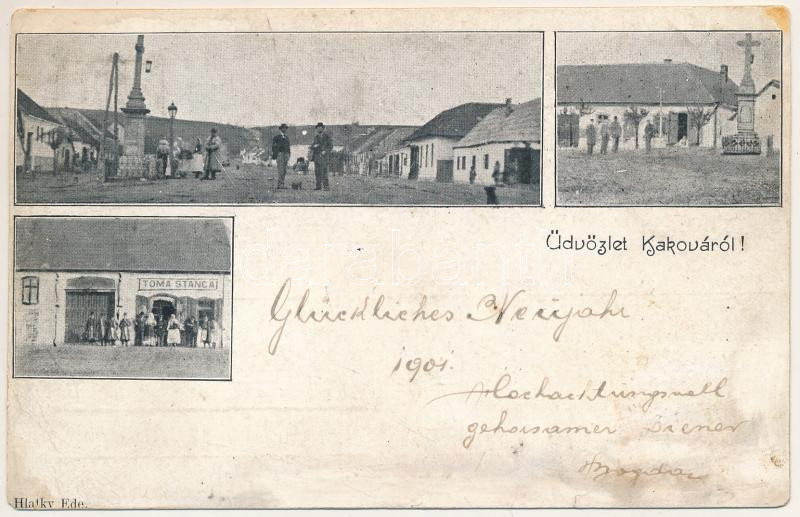 TOMA STANCA
Üdvözlet Kakováról!
Glückliches Neujahr
1901.
Hochachtungsvoll
gehorsamer Diener
Hlatky Ede.